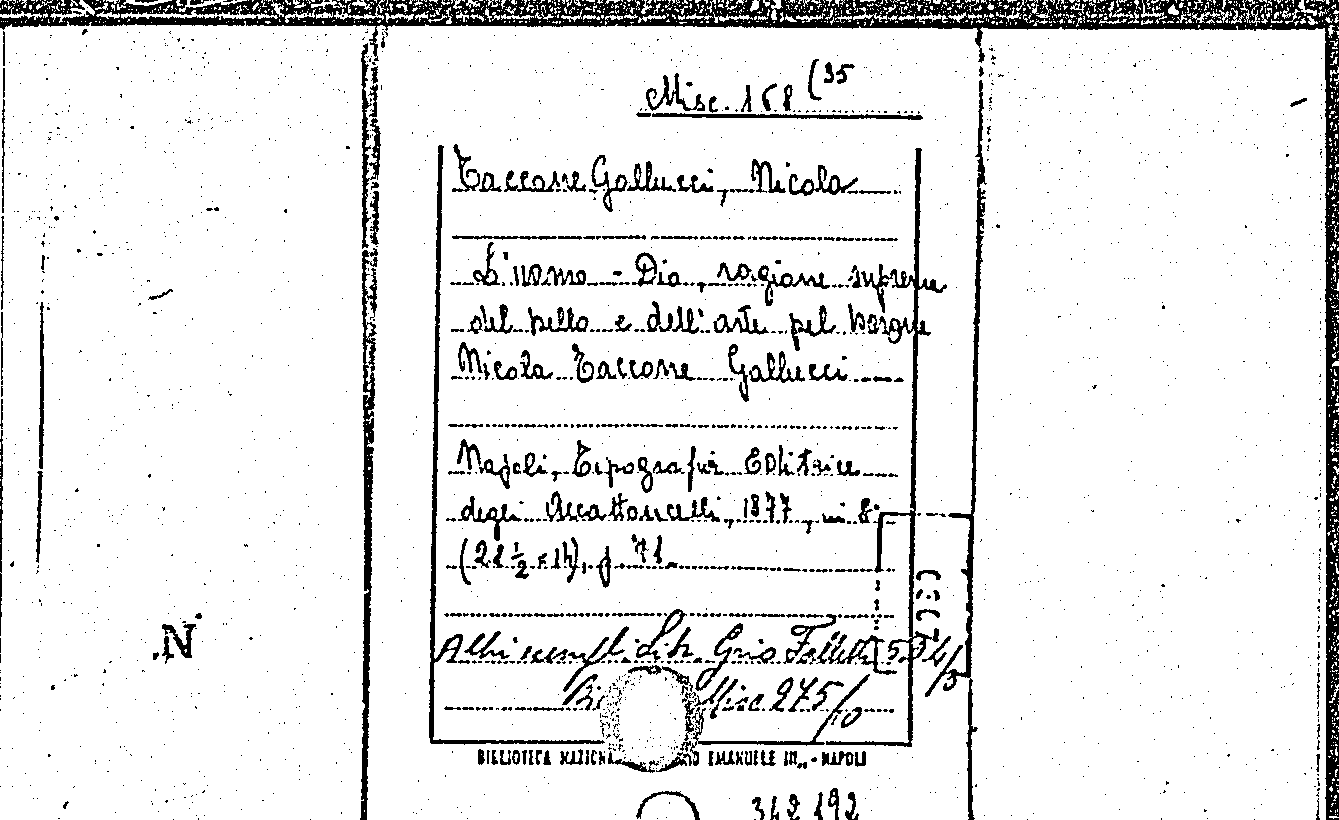 Misc. 168 (35
Taccone Gallucci, Nicola
L'uomo - Dio, ragione suprema
del bello e dell'arte pel
Nicola Taccone Gallucci
Napoli, Tipografia Editrice
degli Accattoncelli, 1877, in 8°
(21 ½ × 14), p. 71.
Altri esempl.: Lib. Grio Falletti 5.3 4/3
Misc 275/10
BIBLIOTECA EMANUELE III„ - NAPOLI
342192
N